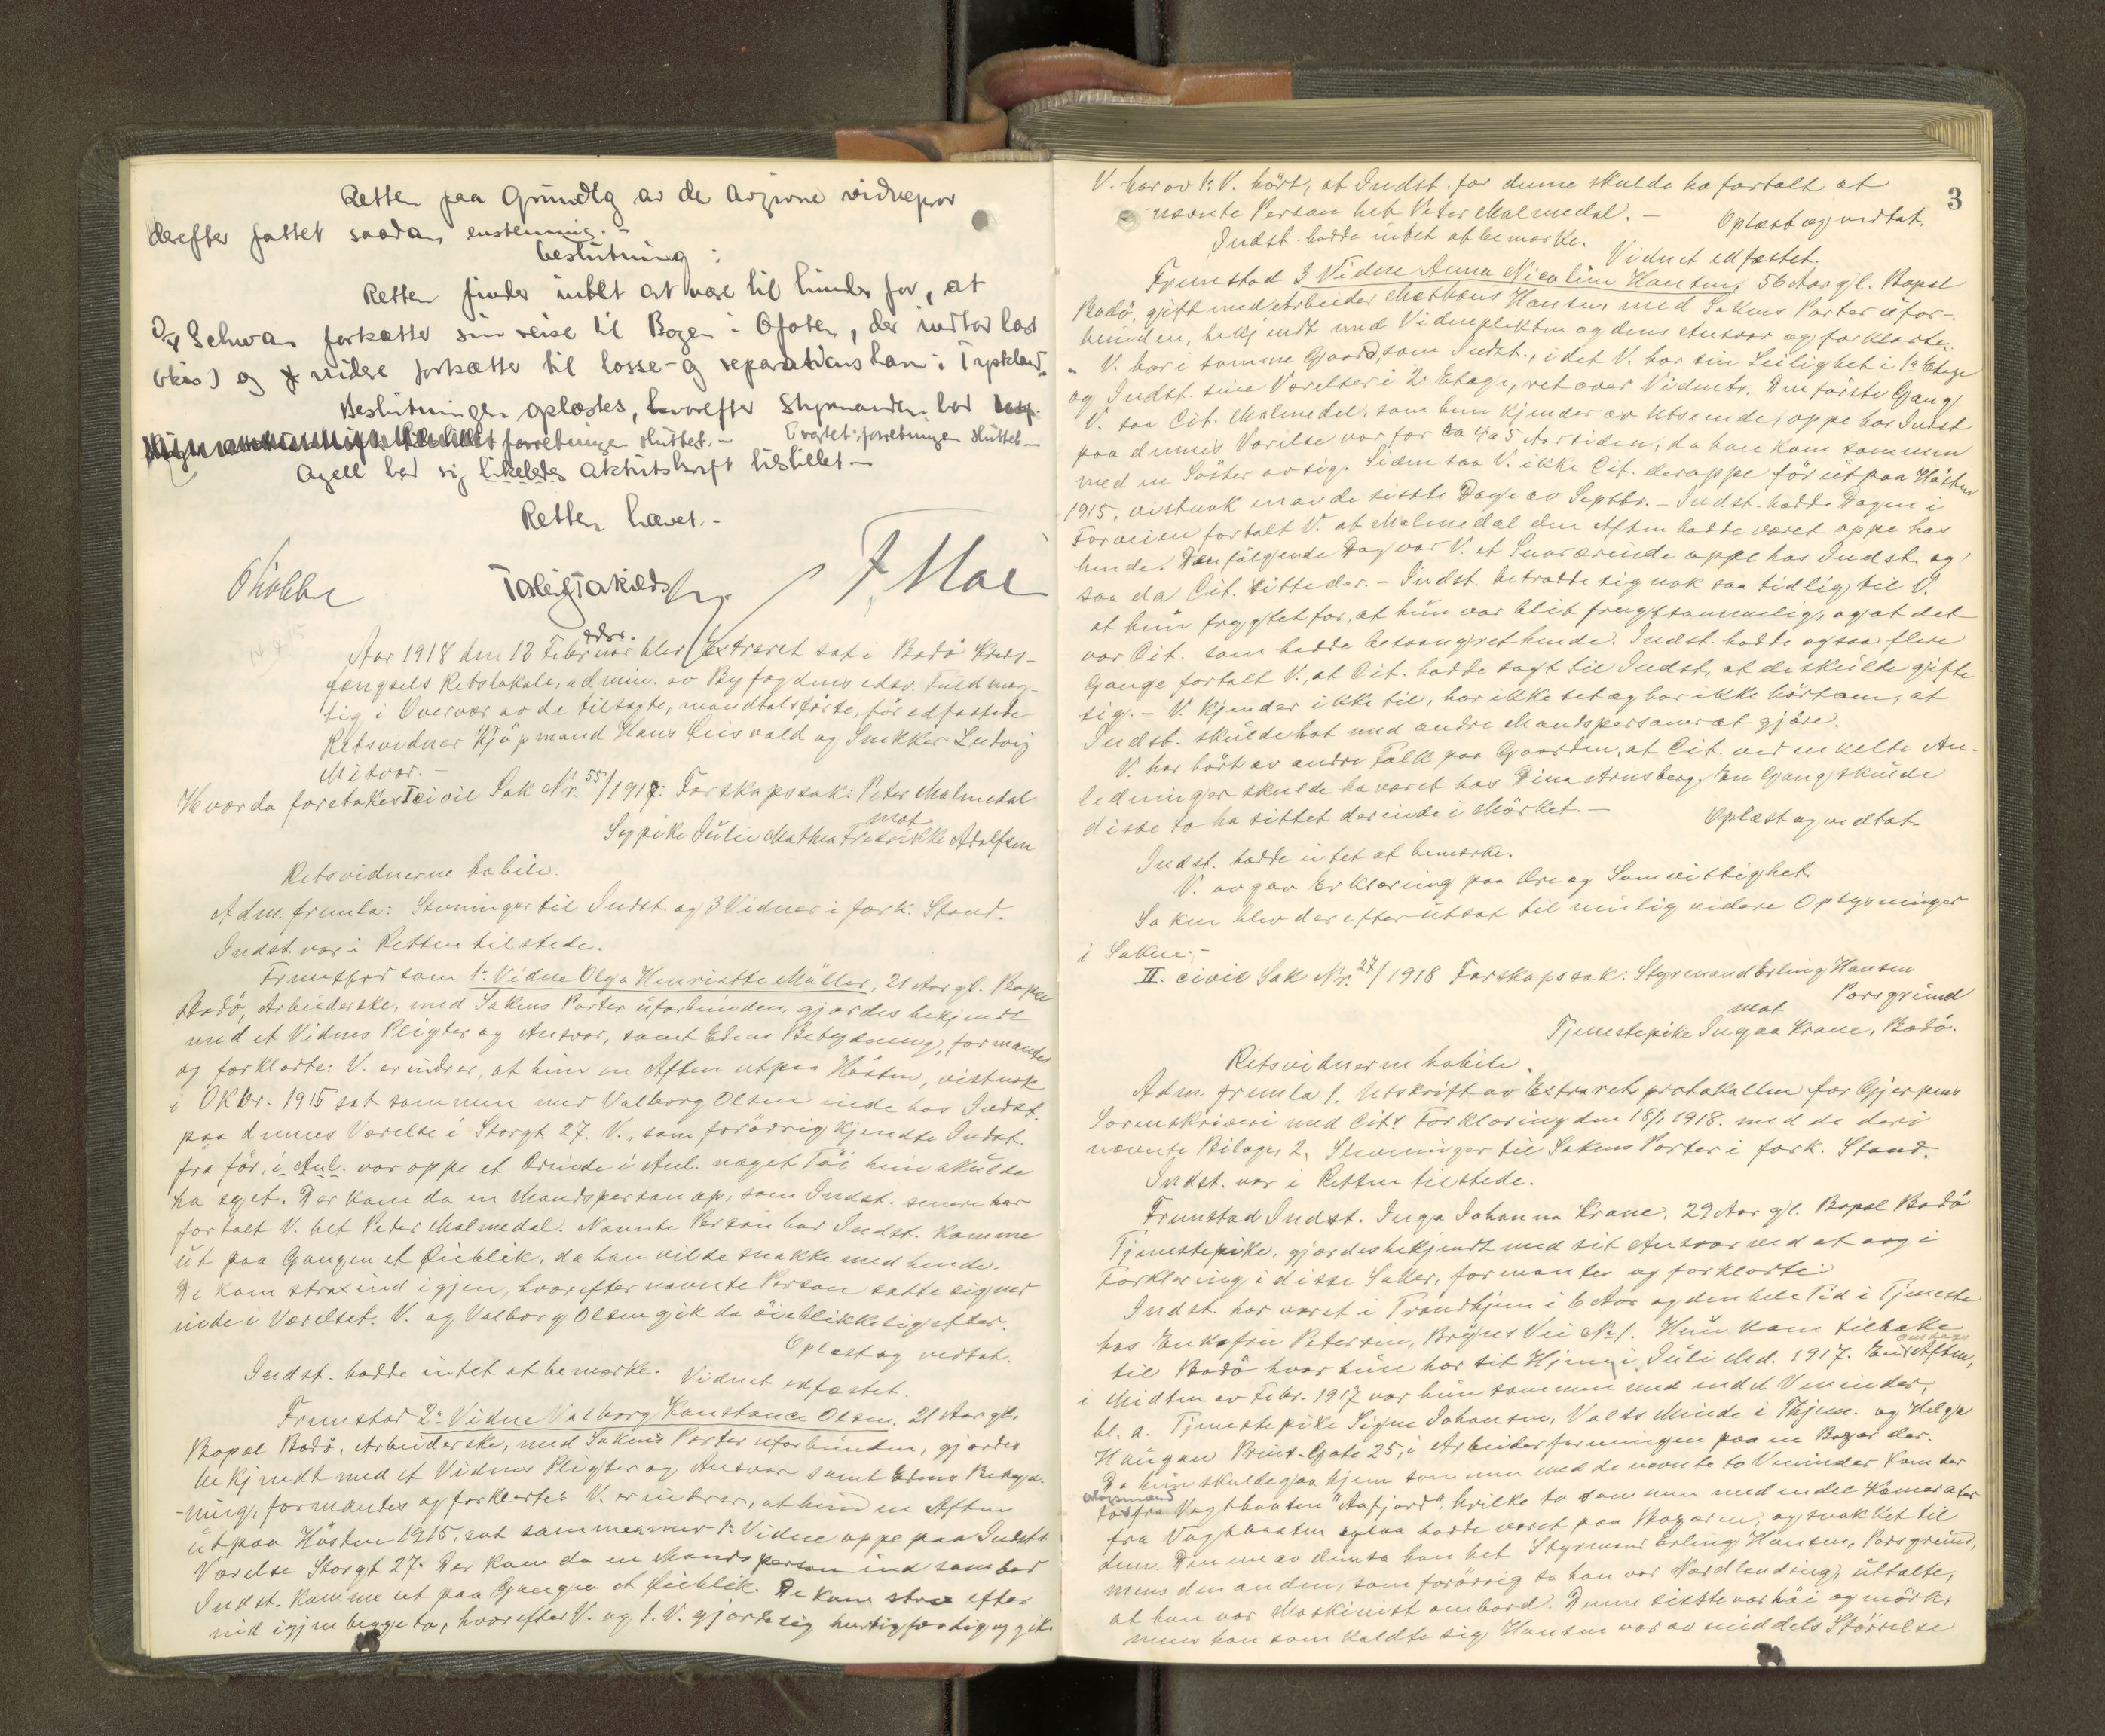 Retten paa Grundlg av de avgivne vidneprov
derefter fattet saadan enstemmig.-
beslutning:
Retten finder intet at være til hinder for, at
D/S Schwan fortsætter sin reise til Bogen i Ofoten, der indtar last
(kis) og videre fortsætter til losse- og reparationshavn i Tyskland.
Beslutningen oplæstes, hvorefter Styrmanden bad
forretningen sluttet.- forretningen sluttet-
Agell bad sig likeledes aktutskrift tilstillet-
Retten hævet.-
F. Moe
Aar 1918 den 12 Februar blev Extraret sat i Bodö Kreds-
fængsels Retslokale, admin. av Byfogdens edsv. Fuldmæg-
tig i Overvær av de tilsagte, mandtalsförte, för edfæstede
Retsvidner Kjöpmand Hans Eiisvold og Snekker Ludvig
Mitvær.-
Hvorda foretokes I civil Sak Nr. 55/1917: Farskapssak: Peter Malmedal
mot
Sypike Julie Mathea Fredrikke Adolfsen
Retsvidnerne habile.
Adm. fremla: Stevninger til Indst. og 3 Vidner i fork. Stand.
Indst. var i Retten tilstede.
Fremstod som 1ste Vidne Olga Henriette Müller, 21 Aar gl. Bopæl
Bodö, Arbeiderske, med Sakens Parter uforbunden, gjordes bekjendt
med et Vidnes Pligter og Ansvar, samt Edens Betydning, formantes
og forklarte: V. erindrer, at hun en Aften utpaa Hösten, vistnok
i Oktbr. 1915 sat sammen med Valborg Olsen inde hos Indst.
paa dennes Værelse i Storgt. 27. V., som forövrig kjendte Indst.
fra för, i Anl. var oppe et Ærinde i Anl. noget Töi hun skulde
ha syet. Der kom da en Mandsperson op, som Indst. senere har
fortalt V. het Peter Malmedal. Nævnte Person bad Indst. komme
ut paa Gangen et Öieblik, da han vilde snakke med hende.
De kom strax ind igjen, hvorefter nævnte Person satte sig ned
inde i Værelset. V. og Valborg Olsen gik da öieblikkelig efter.
Oplæst og vedtat.
Indst. hadde intet at bemerke. Vidnet edfæstet.
Fremstod 2det Vidne Valborg Konstance Olsen, 21 Aar gl.
Bopæl Bodö, Arbeiderske, med Sakens Parter uforbunden, gjordes
bekjendt med et Vidnes Pligter og Ansvar samt Edens Betyd-
-ning, formantes og forklarte: V. erindrer, at hun en Aften
utpaa Hösten 1915, sat sammen med 1ste Vidne oppe paa Indsts
Værelse Storgt 27. Der kom da en Mandsperson ind som bad
Indst. komme ut paa Gangen et Öieblik. De kom strax efter
ind igjen begge to, hvorefter V. og 1. V. gjorde sig hurtig færdig og gik.
3
V. har av 1. V. hört, at Indst. for denne skulde ha fortalt at
nævnte Person het Peter Malmedal.- Oplæst og vedtat.
Indst. hadde intet at bemærke. Vidnet edfæstet.
Fremstod 3 Vidne Anna Nicoline Hansen, 56 Aar gl. Bopæl
Bodö, gift med Arbeider Mathæus Hansen, med Sakens Parter ufor-
bunden, bekjendt med Vidneplikten og dens Ansvar og forklarte:
V. bor i samme Gaard, som Indst., idet V. har sin Leilighet i 1ste Etage
og Indst. sine Værelser i 2. Etage, ret over Vidnets. Den förste Gang
V. saa Cit. Malmedal, som hun kjender av Utseende, oppe hos Indst
paa dennes Værelse var for ca 4 a 5 Aar siden, da han kom sammen
med en Söster av sig. Siden saa V. ikke Cit. deroppe för ut paa Hösten
1915, vistnok en av de sisste Dage av Septbr.- Indst. hadde Dagen i
Forveien fortalt V. at Malmedal den Aften hadde været oppe hos
hende. Den fölgende Dag var V. et Snarærinde oppe hos Indst. og
saa da Cit. sitte der.- Indst. betrodde sig nok saa tidlig til V.
at hun frygtet for, at hun var blit frugtsommelig, og at det
var Cit. som hadde besvangret hende. Indst. hadde ogsaa flere
Gange fortalt V., at Cit. hadde sagt til Indst, at de skulde gifte
sig.- V. kjender ikke til, har ikke set og har ikke hört om, at
Indst. skulde hat med andre Mandspersoner at gjöre.
V. har hört av andre Folk paa Gaarden, at Cit. ved enkelte An-
ledninger skulde ha været hos Dina Arnsberg. En Gang skulde
disse to ha sittet derinde i Mörket.- Oplæst og vedtat.
Indst. hadde intet at bemærke.
V. avgav Erklæring paa Ære og Samvittighet.
Saken blev derefter utsat til mulig videre Oplysninger
i Saken.-
II. civil Sak Nr. 27/1918 Farskapssak: Styrmand Erling Hansen
Porsgrund
mot
Tjenestepike Inga Krane, Bodö.
Retsvidnerne habile.
Adm. fremla 1. Utskrift av Extraretsprotokollen for Gjerpens
Sorenskriveri med Cits Forklaring den 18/1 1918. med de deri
nævnte Bilage, 2. Stevninger til Sakens Parter i fork. Stand.
Indst. var i Retten tilstede.
Fremstod Indst. Inga Johanna Krane, 29 Aar gl. Bopæl Bodö
Tjenestepike, gjordes bekjendt med sit Ansvar ved at avgi
Forklaring i disse Saker, formantes og forklarte:
Indst. har været i Trondhjem i 6 Aar og den hele Tid i Tjeneste
hos Enkefru Petersen, Bryns Vei No 1. Hun kom tilbake
til Bodö hvor hun har sit Hjem, i Juli Md. 1917. En Aften,
i Midten av Febr. 1917 var hun sammen med endel Veninder,
bl. a. Tjenestepike Signe Johansen, Valds Minde i Thjem. og Helga
Haugan Prins. Gate 25, i Arbeiderforeningen paa en Bazar der.
Da hun skulde gaa hjem sammen med de nævnte to Veninder kom der
to fra Vagtbaaten "Aafjord", hvilke to sammen med endel Kamerater
fra Vagtbaaten ogsaa hadde været paa Bazaren, og snakket til
dem. Den ene av dem sa han het Styrmand Erling Hansen, Porsgrund,
mens den anden, som forövrig sa han var Nordlænding, uttalte,
at han var Maskinist ombord. Denne sisste var höi og mörk,
mens han som kaldte sig Hansen var av middels Störrelse